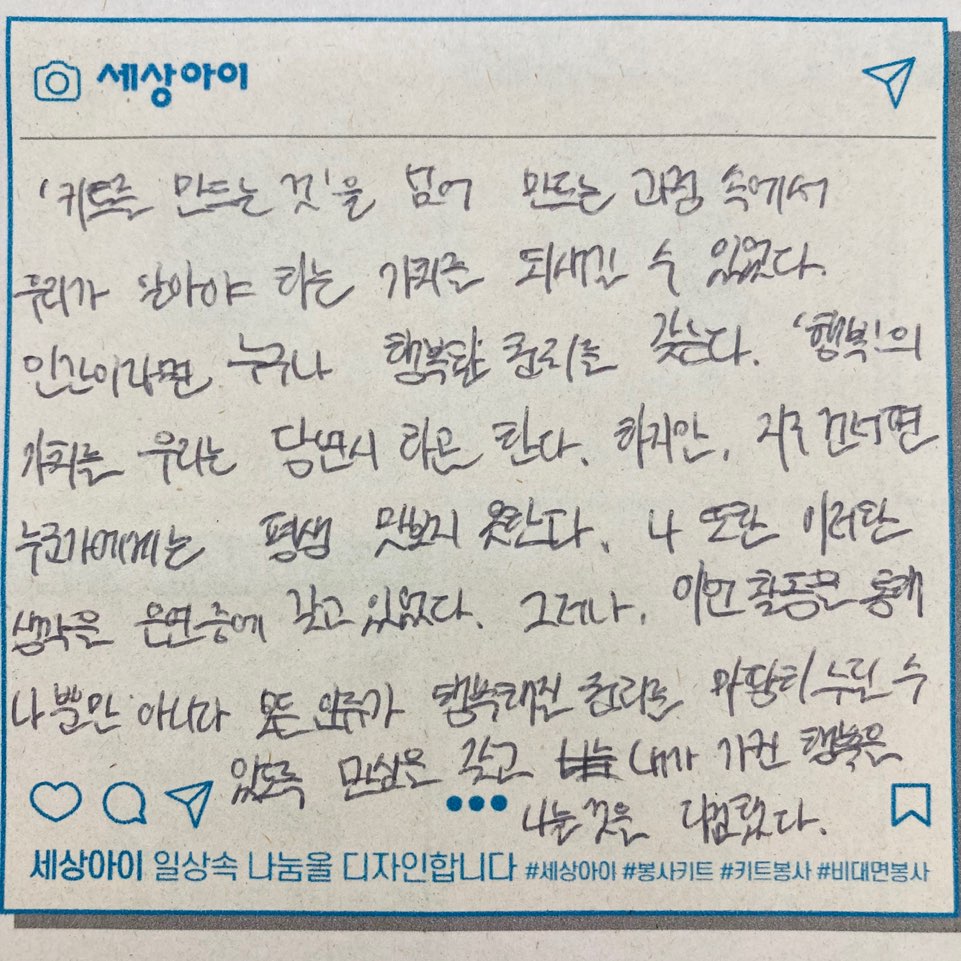 세상아이
'키트를 만드는 것'을 넘어 만드는 과정 속에서
우리가 알아야 하는 가치를 되새길 수 있었다.
인간이라면 누구나 행복할 권리를 갖는다. '행복'의
가치를 우리는 당연시 하곤 한다. 하지만, 지구 건너편
누군가에게는 평생 맛보지 못한다. 나 또한 이러한
생각을 은연중에 갖고 있었다. 그러나, 이번 활동을 통해
나 뿐만 아니라 모든 인류가 행복해질 권리를 마땅히 누릴 수
있도록 관심을 갖고 내가 가진 행복을
나눌 것을 다짐했다.
세상아이 일상속 나눔을 디자인합니다 #세상아이 #봉사키트 #키트봉사 #비대면봉사